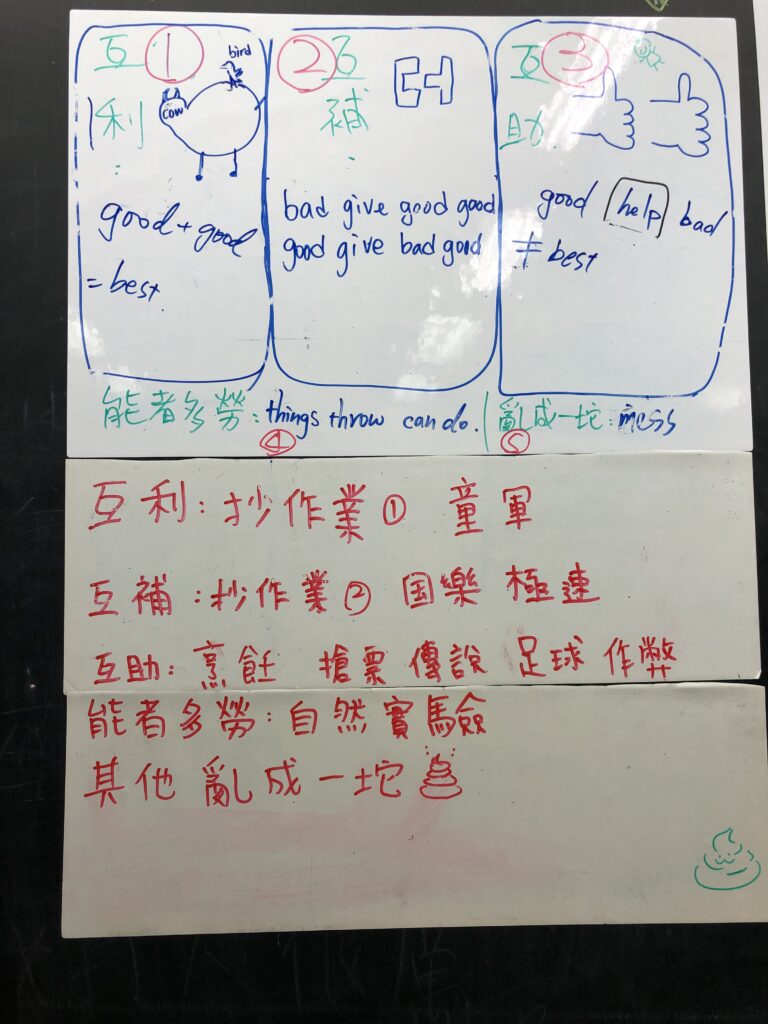 互利: ①
bird
cow
good + good
= best
②互補:
bad give good good
good give bad good
互助: ③
good help bad
≠ best
能者多勞: things throw can do. ④
亂成一坨: mess ⑤
互利: 抄作業① 童軍
互補: 抄作業② 国樂 極速
互助: 烹飪 搶票 傳說 足球 作弊
能者多勞: 自然實驗
其他 亂成一坨